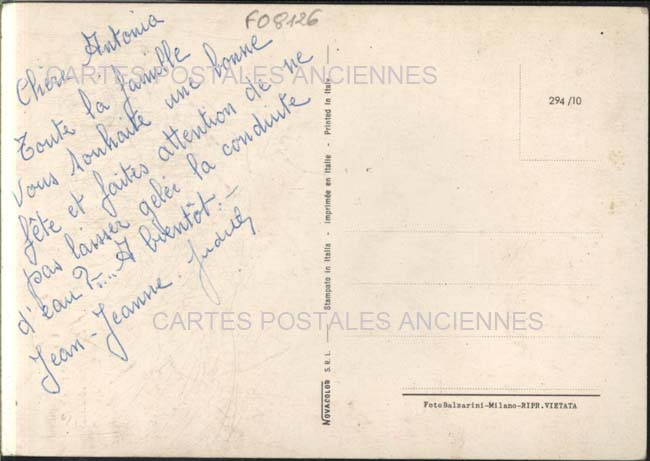 FO8126
Chère Antonia
Toute la famille
vous souhaite une bonne
fête et faites attention de ne
pas laisser gelée la conduite
d'eau ?.... A bientôt.
Jean - Jeanne Judith
CARTES POSTALES ANCIENNES
CARTES POSTALES ANCIENNES
NOVACOLOR S.R.L. — Stampato in Italia - Imprimée en Italie - Printed in Italy
294/10
FotoBalzarini-Milano-RIPR.VIETATA